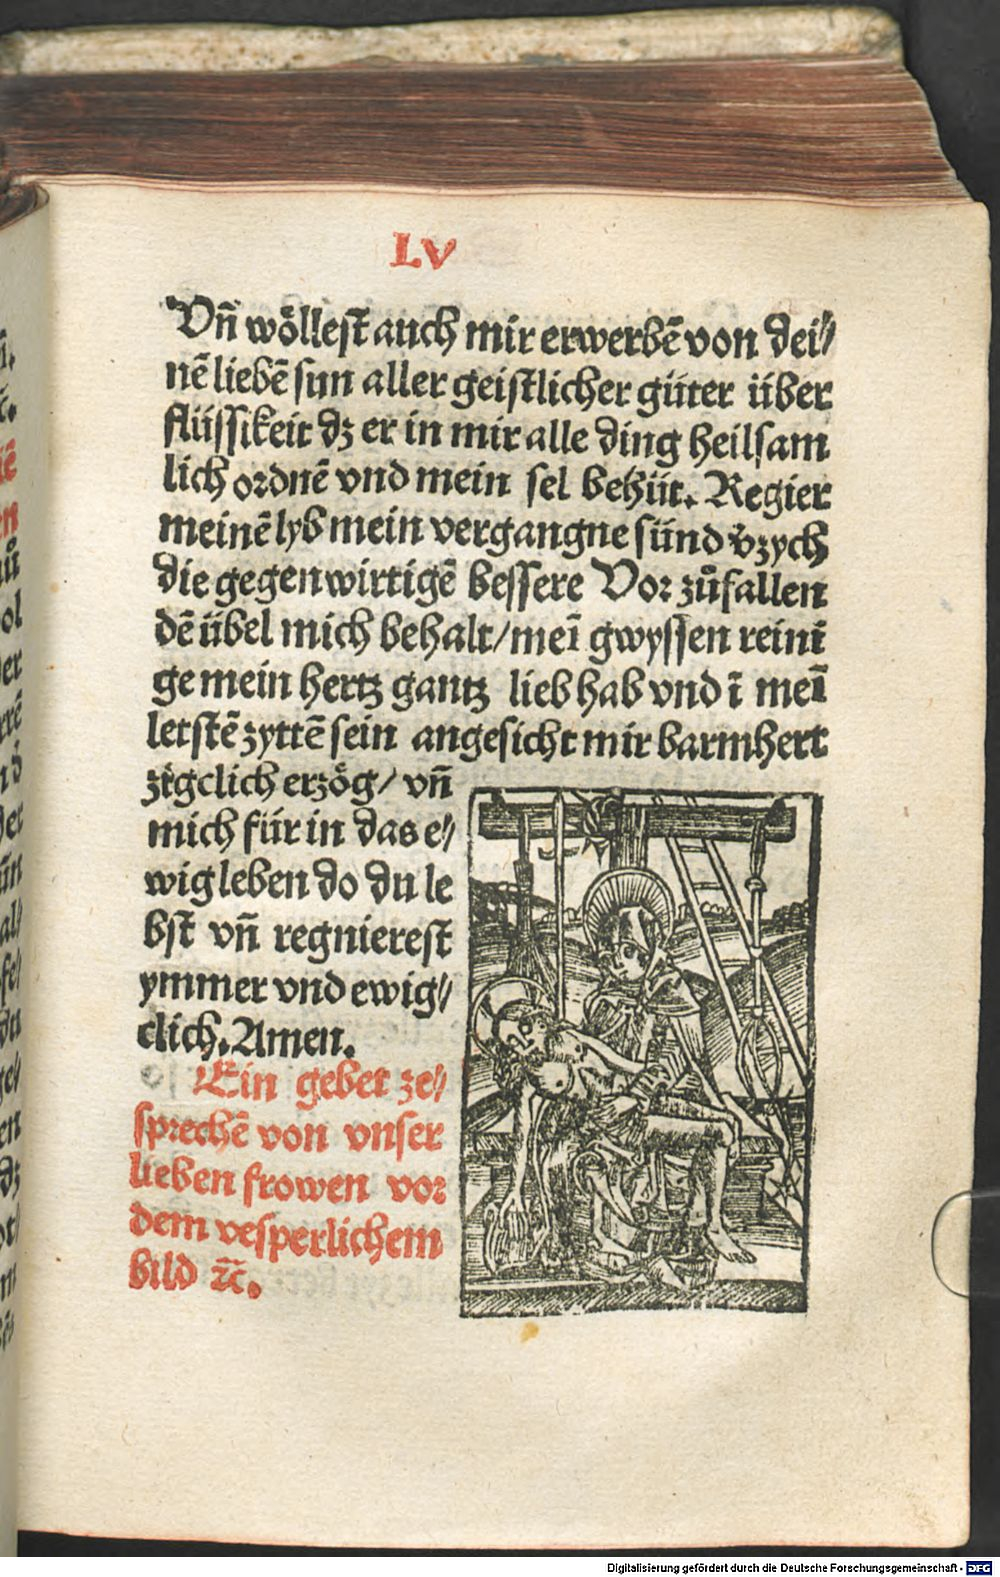 LV
Vñ wöllest auch mir erwerbē von dei⸗
nē liebē sun aller geistlicher güter über
flüssikeit dz er in mir alle ding heilsam
lich ordnē vnd mein sel behüt. Regier
meinē lyb mein vergangne sünd v̉zych
die gegenwirtigē bessere Vor zůfallen
dē übel mich behalt/meī gwyssen reini
ge mein hertz gantz lieb hab vnd ī meī
letstē zyttē sein angesicht mir barmhert
zigclich erzög/ vñ
mich für in das e⸗
wig leben do du le
bst vñ regnierest
ymmer vnd ewig⸗
clich. Amen.
Ein gebet ze⸗
sprechē von vnser
lieben frowen vor
dem vesperlichem
bild ⁊c̄.
Digitalisierung gefördert durch die Deutsche Forschungsgemeinschaft - DFG